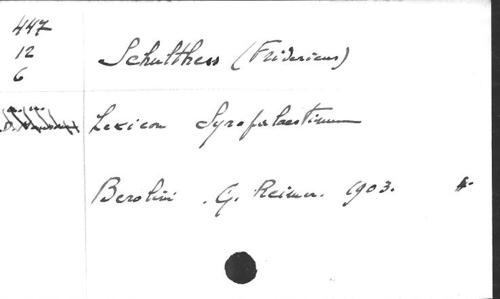 447
12
6
Schulthess (Fridericus)
Lexicon Syropalaestinum
Berolini . G. Reimer. 1903.